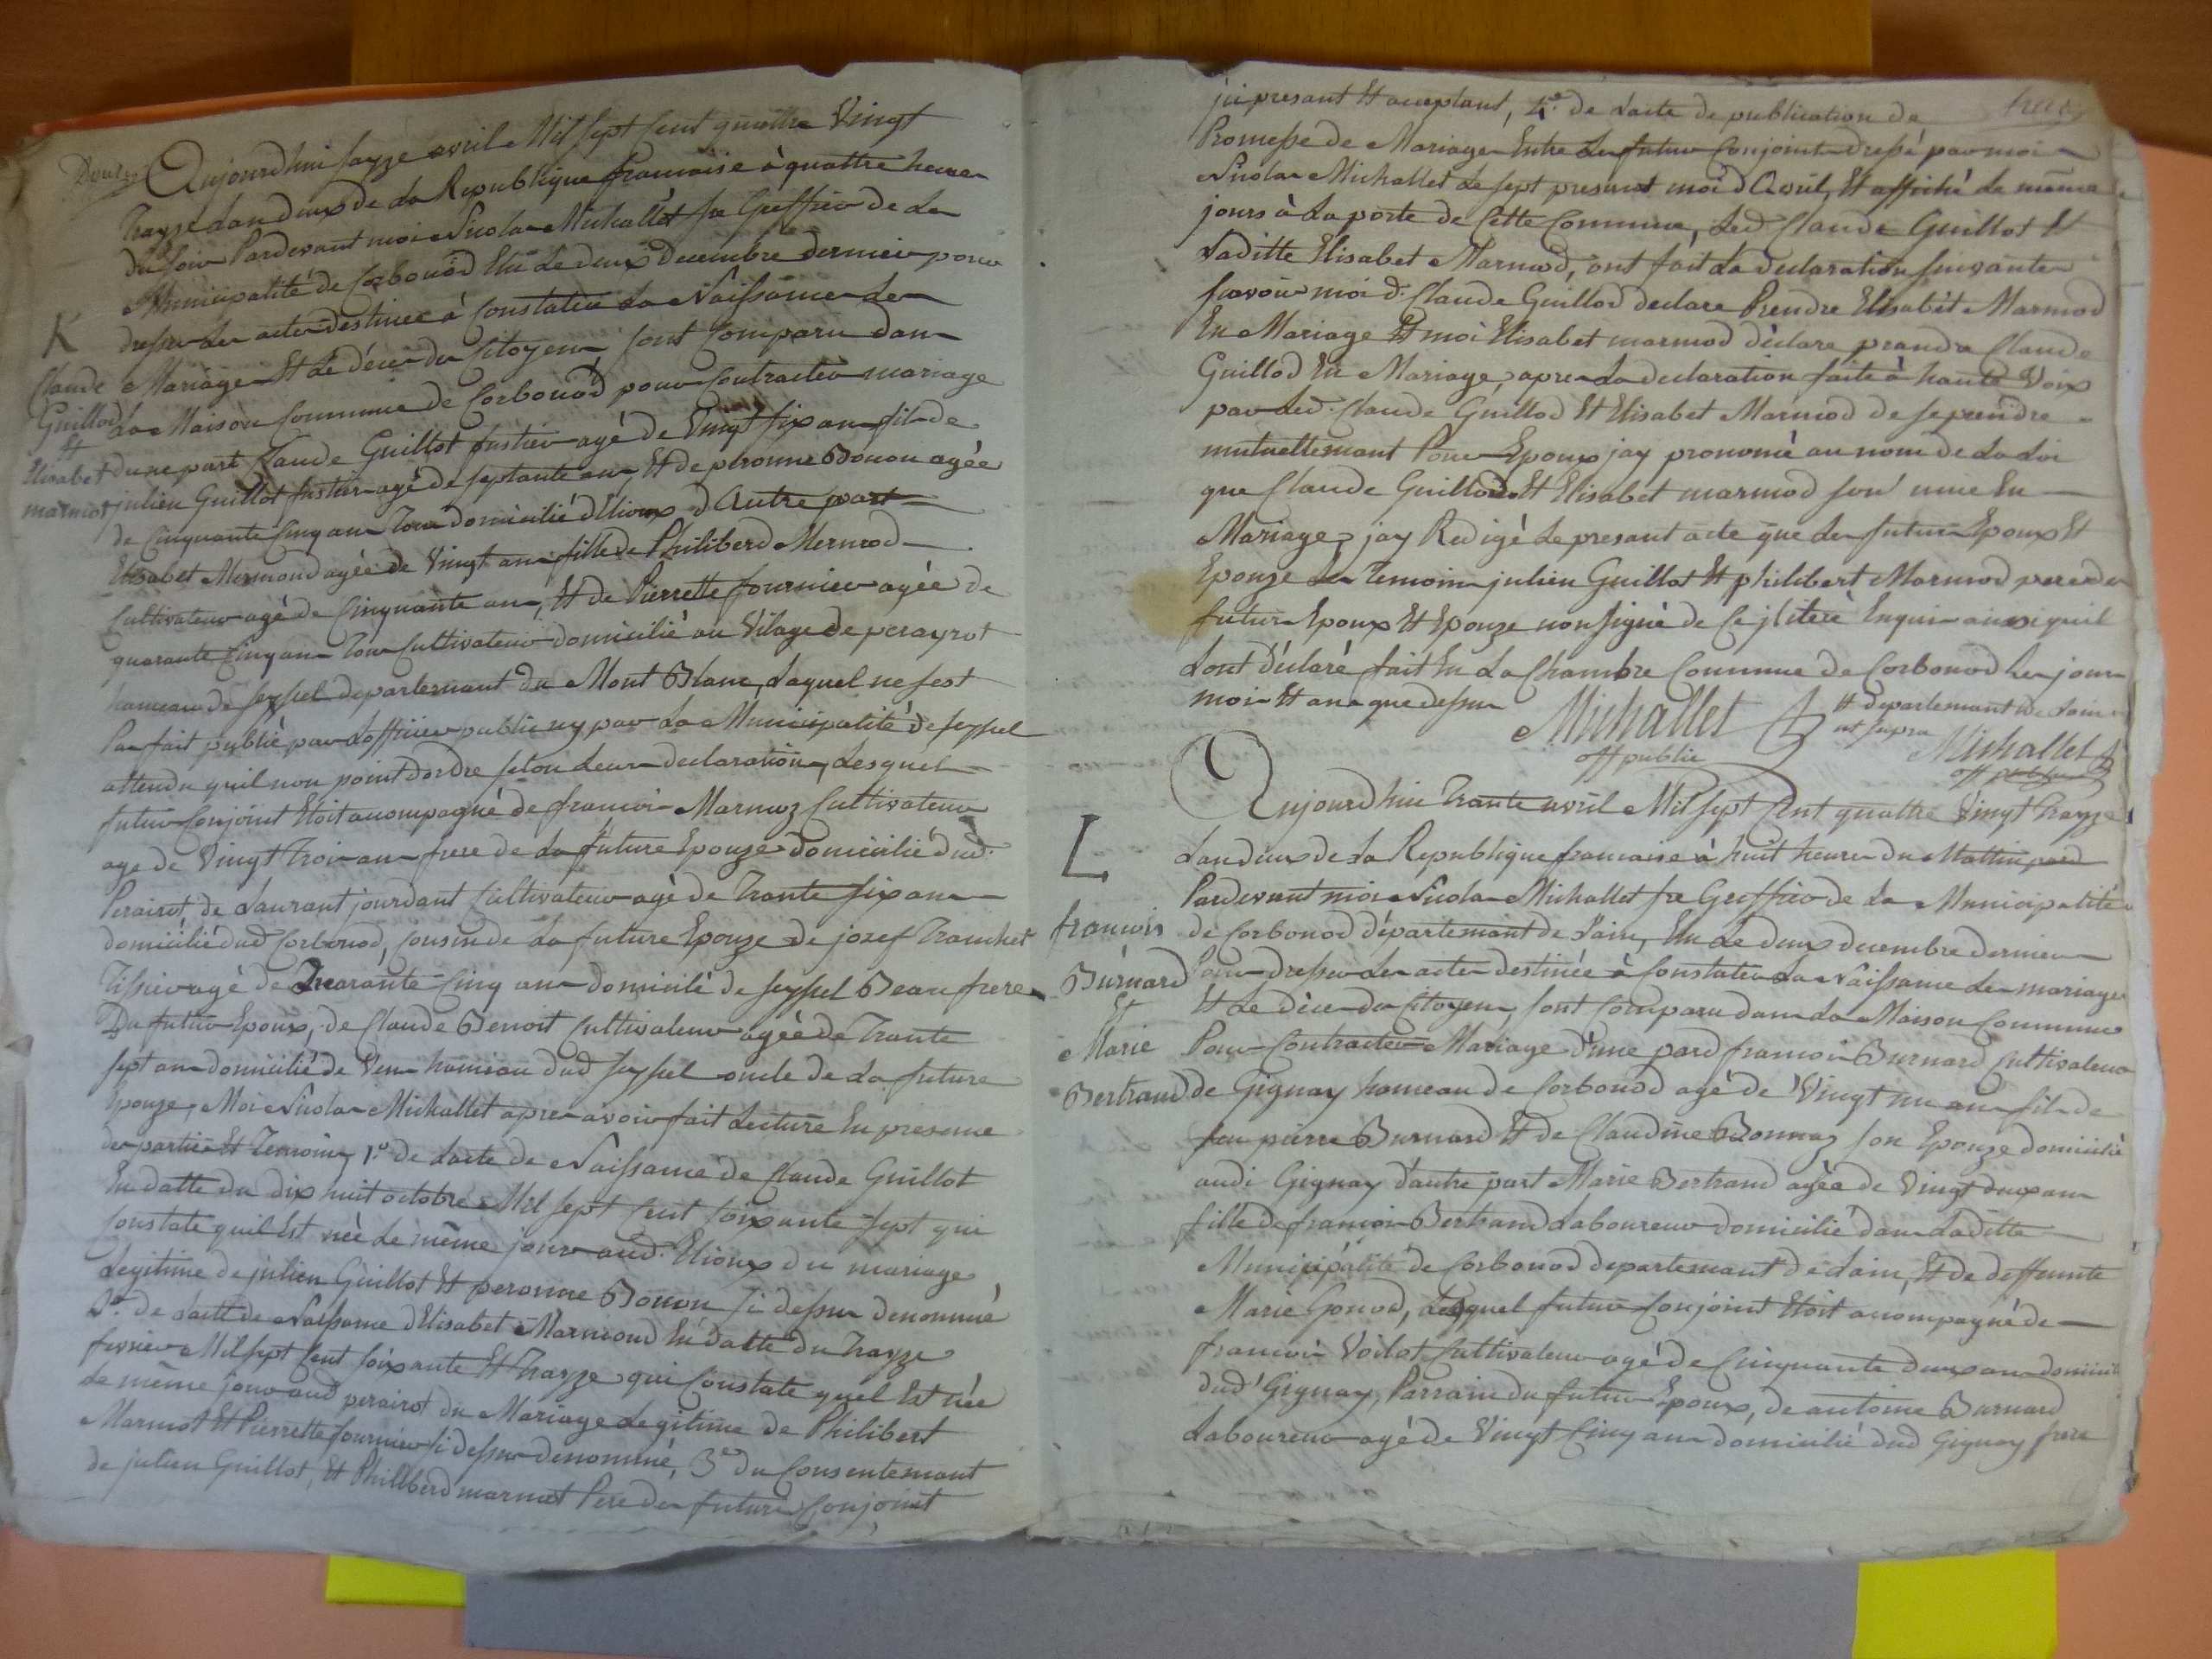 Douze
Aujourdhui sayze avril Mil sept Cent quattre Vingt
Trayze Lan deux de La Republique francaise à quattre heure
du soir Pardevant moi Nicolas Michallet fre Greffier de La
Municipalité de Corbonod Elu Le deux decembre dernier pour
dresser Les actes destinée à Constater La Naissance Le
Mariage Et Le déces des Citoyens sont Comparu dans
La Maison Commune de Corbonod pour Contracter mariage
K
Claude
Guillod
Et
Elisabet
marmot
dune part Claude Guillot fustier agé de Vingt six an fils de
julien Guillot fustier agé de septante ans Et de peronne Bonon agée
de Cinquante Cinq ans Tous domicilié d'Elioux d'Autre part
Elisabet Mermond agée de Vingt ans fille de Philiberd Mermod
Cultivateur agé de Cinquante ans, Et de Pierrette fournier agée de
quarante Cinq ans Tous Cultivateur domicilié au Vilage de perayrot
hameau de Seyssel departemant du Mont Blanc, Laquel ne sest
Pas fait publié par Lofficier public ny par La Municipalité de Seyssel
attendu quil non point dordre selon Leurs declaration, Lesquel
futur Conjoint Etoit acompagné de francois Marmoz Cultivateur
age de Vingt Trois ans frere de La future Epouze domicilié dud.
Perairot, de Laurant jourdant Cultivateur agé de Trante six ans
domicilié dud Corbonod, Cousin de La future Epouze de jozef Tranchet
Tissier agé de Quarante Cinq ans domicilé de Seyssel Beau frere
Du futur Epoux, de Claude Benoit Cultivateur agée de Trante
sept ans domicilié de Vens hameau dud Seyssel oncle de La future
Epouze, Moi Nicolas Michallet apres avoir fait Lecture En presence
des parties Et Temoins, 1.° de Lacte de Naissance de Claude Guillot
En datte du dix huit octobre Mil sept Cent soixante sept qui
Constate quil Est née Le même jour aud. Elioux du mariage
Legitime de julien Guillot Et peronne Bonon si dessus denommé
2.° de Lacte de Naissance d'Elisabet Marmond En datte du Trayze
fevrier Mil sept Cent soixante Et Trayze qui Constate quel Est née
Le même jour aud perairot du Mariage Legitime de Philibert
Marmot Et Pierrette fournier si dessus denommé, 3.° du Consentemant
de julien Guillot, Et Philiberd marmot Pere des futurs Conjoint
jci presant Et aceptant, 4.° de Lacte de publication de
Promesse de Mariage Entre Les futur Conjoint dressé par moi
Nicolas Michallet Le sept presant moi d'Avril, Et affiché Le même
jours à La porte de Cette Commune, Led Claude Guillot Et
Laditte Elisabet Marmod, ont fait La declaration suivante
savoir moi d. Claude Guillod declare Prendre Elisabet Marmod
En Mariage Et moi Elisabet marmod déclare prandre Claude
Guillod En Mariage, apres La declaration faite à haute Voix
par Led. Claude Guillod Et Elisabet Marmod de se prendre
mutuellemant Pour Epoux jay prononcé au nom de La Loi
que Claude Guillod Et Elisabet marmod son unie En
Mariage, jay Redigé Le presant acte que Les futurs Epoux Et
Epouze Les Temoins julien Guillot Et philibert Marmod peres des
futurs Epoux Et Epouze non signé de Ce jlitere Enquis ainsi quil
Lont déclaré fait En La Chambre Commune de Corbonod Les jour
mois Et ans que dessus
Michallet
off public
Et departemant de Lain
ut supra
Michallet
off public
L
francois
Burnard
Et
Marie
Bertrand
Aujourdhui Trante avril Mil sept Cent quattre Vingt Trayze
Lan deux de La Republique francaise à huit heures du Mattin pard
Pardevant moi Nicolas Michallet fre Greffier de La Municipalité
de Corbonod départemant de Lain, Elu Le deux decembre dernier
Pour dresser Les actes destinée à Constater La Naissance Les mariage
Et Le déces des Citoyens, sont Comparu dans La Maison Commune
Pour Contracter Mariage d'une pard francois Burnard Cultivateur
de Gignay hameau de Corbonod agé de Vingt un ans fils de
feu pierre Burnard Et de Claudine Bonnaz son Epouze domicilié
audi Gignay d'autre part Marie Bertrand agée de Vingt deux ans
fille de francois Bertrand Laboureur domicilié dans Laditte
Municipalité de Corbonod departemant de Lain, Et de deffunte
Marie Gonod, Lesquel futur Conjoint Etoit acompagné de
francois Voilat Cultivateur agé de Cinquante deux ans domicilié
dud' Gignay, Parrain du futur Epoux, de antoine Burnard
Laboureur agé de Vingt Cinq ans domicilié dud Gignay frere